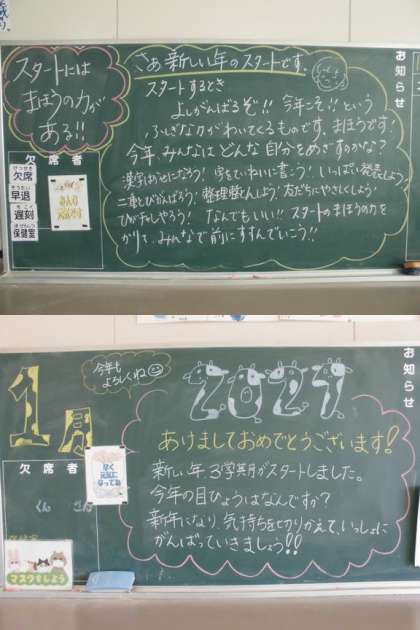 スタートには
まほうの力が
ある!!
さあ新しい年のスタートです。
スタートするとき
よしがんばるぞ!! 今年こそ!! という
ふしぎな力がわいてくるものです。まほうです!
今年、みんなはどんな自分をめざすのかな?
漢字はかせになろう! 字をていねいに書こう! いっぱい発表しよう
二重とびがんばろう! 整理整とんしよう! 友だちにやさしくしよう!
なんでもいい!! スタートのまほうの力を
かりて、みんなで前にすすんでいこう!!
お知らせ
欠席者
けっせき
欠席
そうたい
早退
ちこく
遅刻
ほけんしつ
保健室
みんな
元気です
1月
今年も
よろしくね
2021
あけましておめでとうございます!
新しい年、3学期がスタートしました。
今年の目ひょうはなんですか?
新年になり、気持ちをきりかえて、いっしょに
がんばっていきましょう!!
お知らせ
欠席者
くん さん
早く
元気に
なってね
マスクをしよう